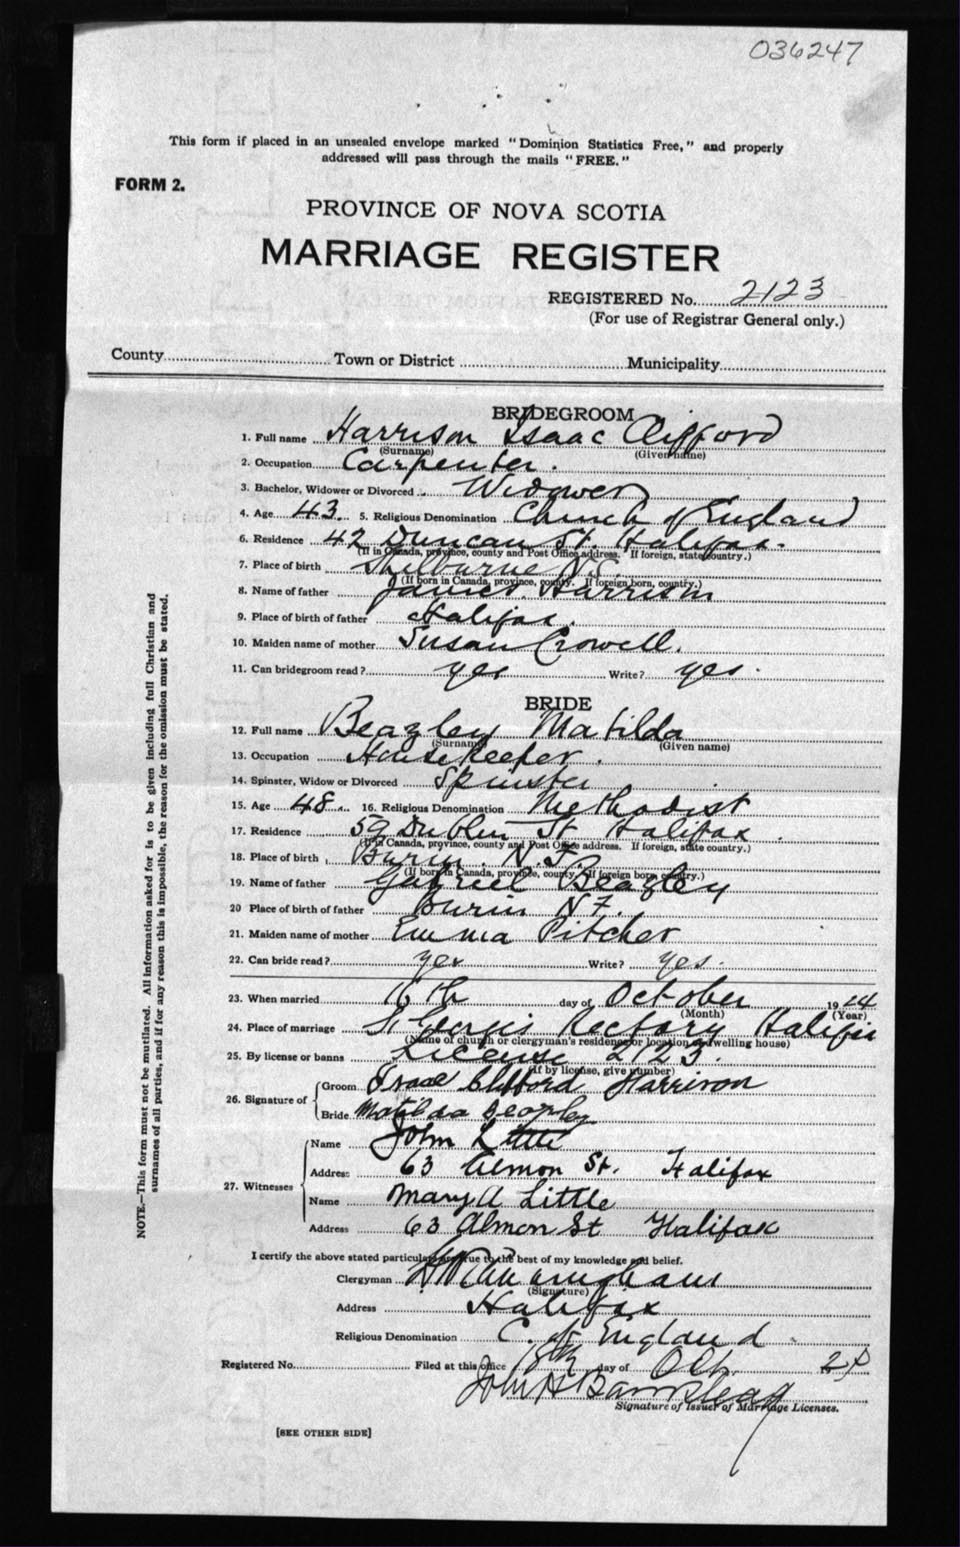 036247
This form if placed in an unsealed envelope marked "Dominion Statistics Free," and properly
addressed will pass through the mails "FREE."
FORM 2.
PROVINCE OF NOVA SCOTIA
MARRIAGE REGISTER
REGISTERED No. 2123
(For use of Registrar General only.)
County Town or District Municipality
BRIDEGROOM
1. Full name Harrison Isaac Clifford
(Surname) (Given name)
2. Occupation Carpenter.
3. Bachelor, Widower or Divorced Widower
4. Age 43. 5. Religious Denomination Church of England
6. Residence 42 Duncan St. Halifax.
(If in Canada, province, county and Post Office address. If foreign, state country.)
7. Place of birth Shelburne N.S.
(If born in Canada, province, county. If foreign born, country.)
8. Name of father James Harrison
9. Place of birth of father Halifax.
10. Maiden name of mother Susan Crowell.
11. Can bridegroom read? yes Write? yes.
BRIDE
12. Full name Beazley Matilda
(Surname) (Given name)
13. Occupation Housekeeper.
14. Spinster, Widow or Divorced Spinster
15. Age 48 16. Religious Denomination Methodist
17. Residence 59 Dublin St Halifax.
(If in Canada, province, county and Post Office address. If foreign, state country.)
18. Place of birth Burin. N.F.
(If born in Canada, province, county. If foreign born, country.)
19. Name of father Gabriel Beazley
20 Place of birth of father Burin N F.
21. Maiden name of mother Emma Pitcher
22. Can bride read? yes Write? yes.
23. When married 16th day of October 1924
(Month) (Year)
24. Place of marriage St Georges Rectory Halifax
(Name of church or clergyman's residence or location of dwelling house)
25. By license or banns License 2123.
(If by license, give number)
26. Signature of
Groom Isaac Clifford Harrison
Bride Matilda Beazley
27. Witnesses
Name John Little
Address 63 Almon St. Halifax
Name Mary A Little
Address 63 Almon St Halifax
I certify the above stated particulars are true to the best of my knowledge and belief.
Clergyman Cunningham
(Signature)
Address Halifax
Religious Denomination C. of England.
Registered No. Filed at this office 18th day of Oct. 24
John H
Signature of Issuer of Marriage Licenses.
[SEE OTHER SIDE]
NOTE.—This form must not be mutilated. All information asked for is to be given including full Christian and
surnames of all parties, and if for any reason this is impossible, the reason for the omission must be stated.